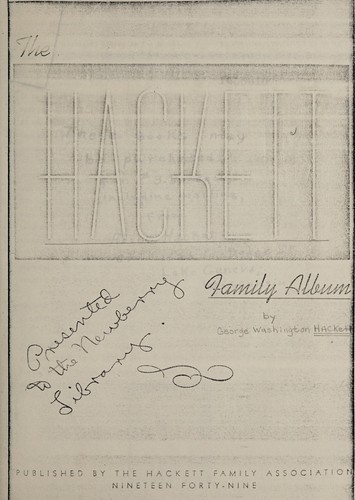 The
HACKETT
Family Album
by
George Washington HACKETT
Presented
to the Newberry
Library.
PUBLISHED BY THE HACKETT FAMILY ASSOCIATION
NINETEEN FORTY-NINE